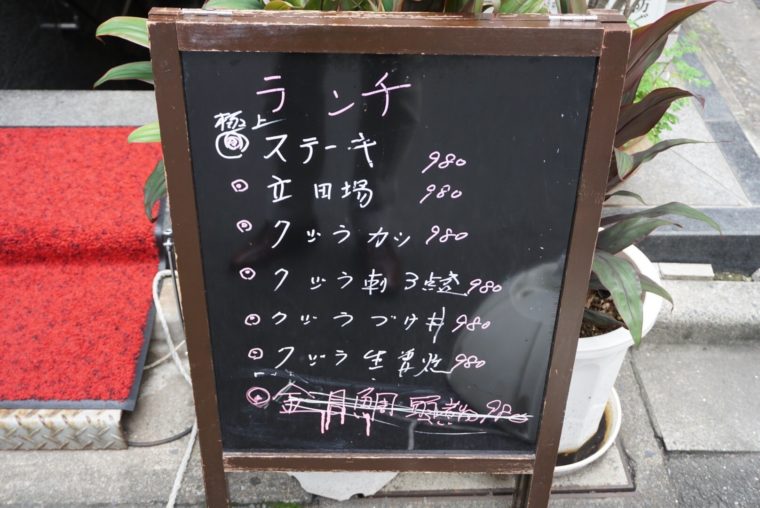 ランチ
極上
ステーキ 980
立田揚 980
クジラカツ 980
クジラ刺3点盛 980
クジラづけ丼 980
クジラ生姜焼 980
金目鯛 頭 980